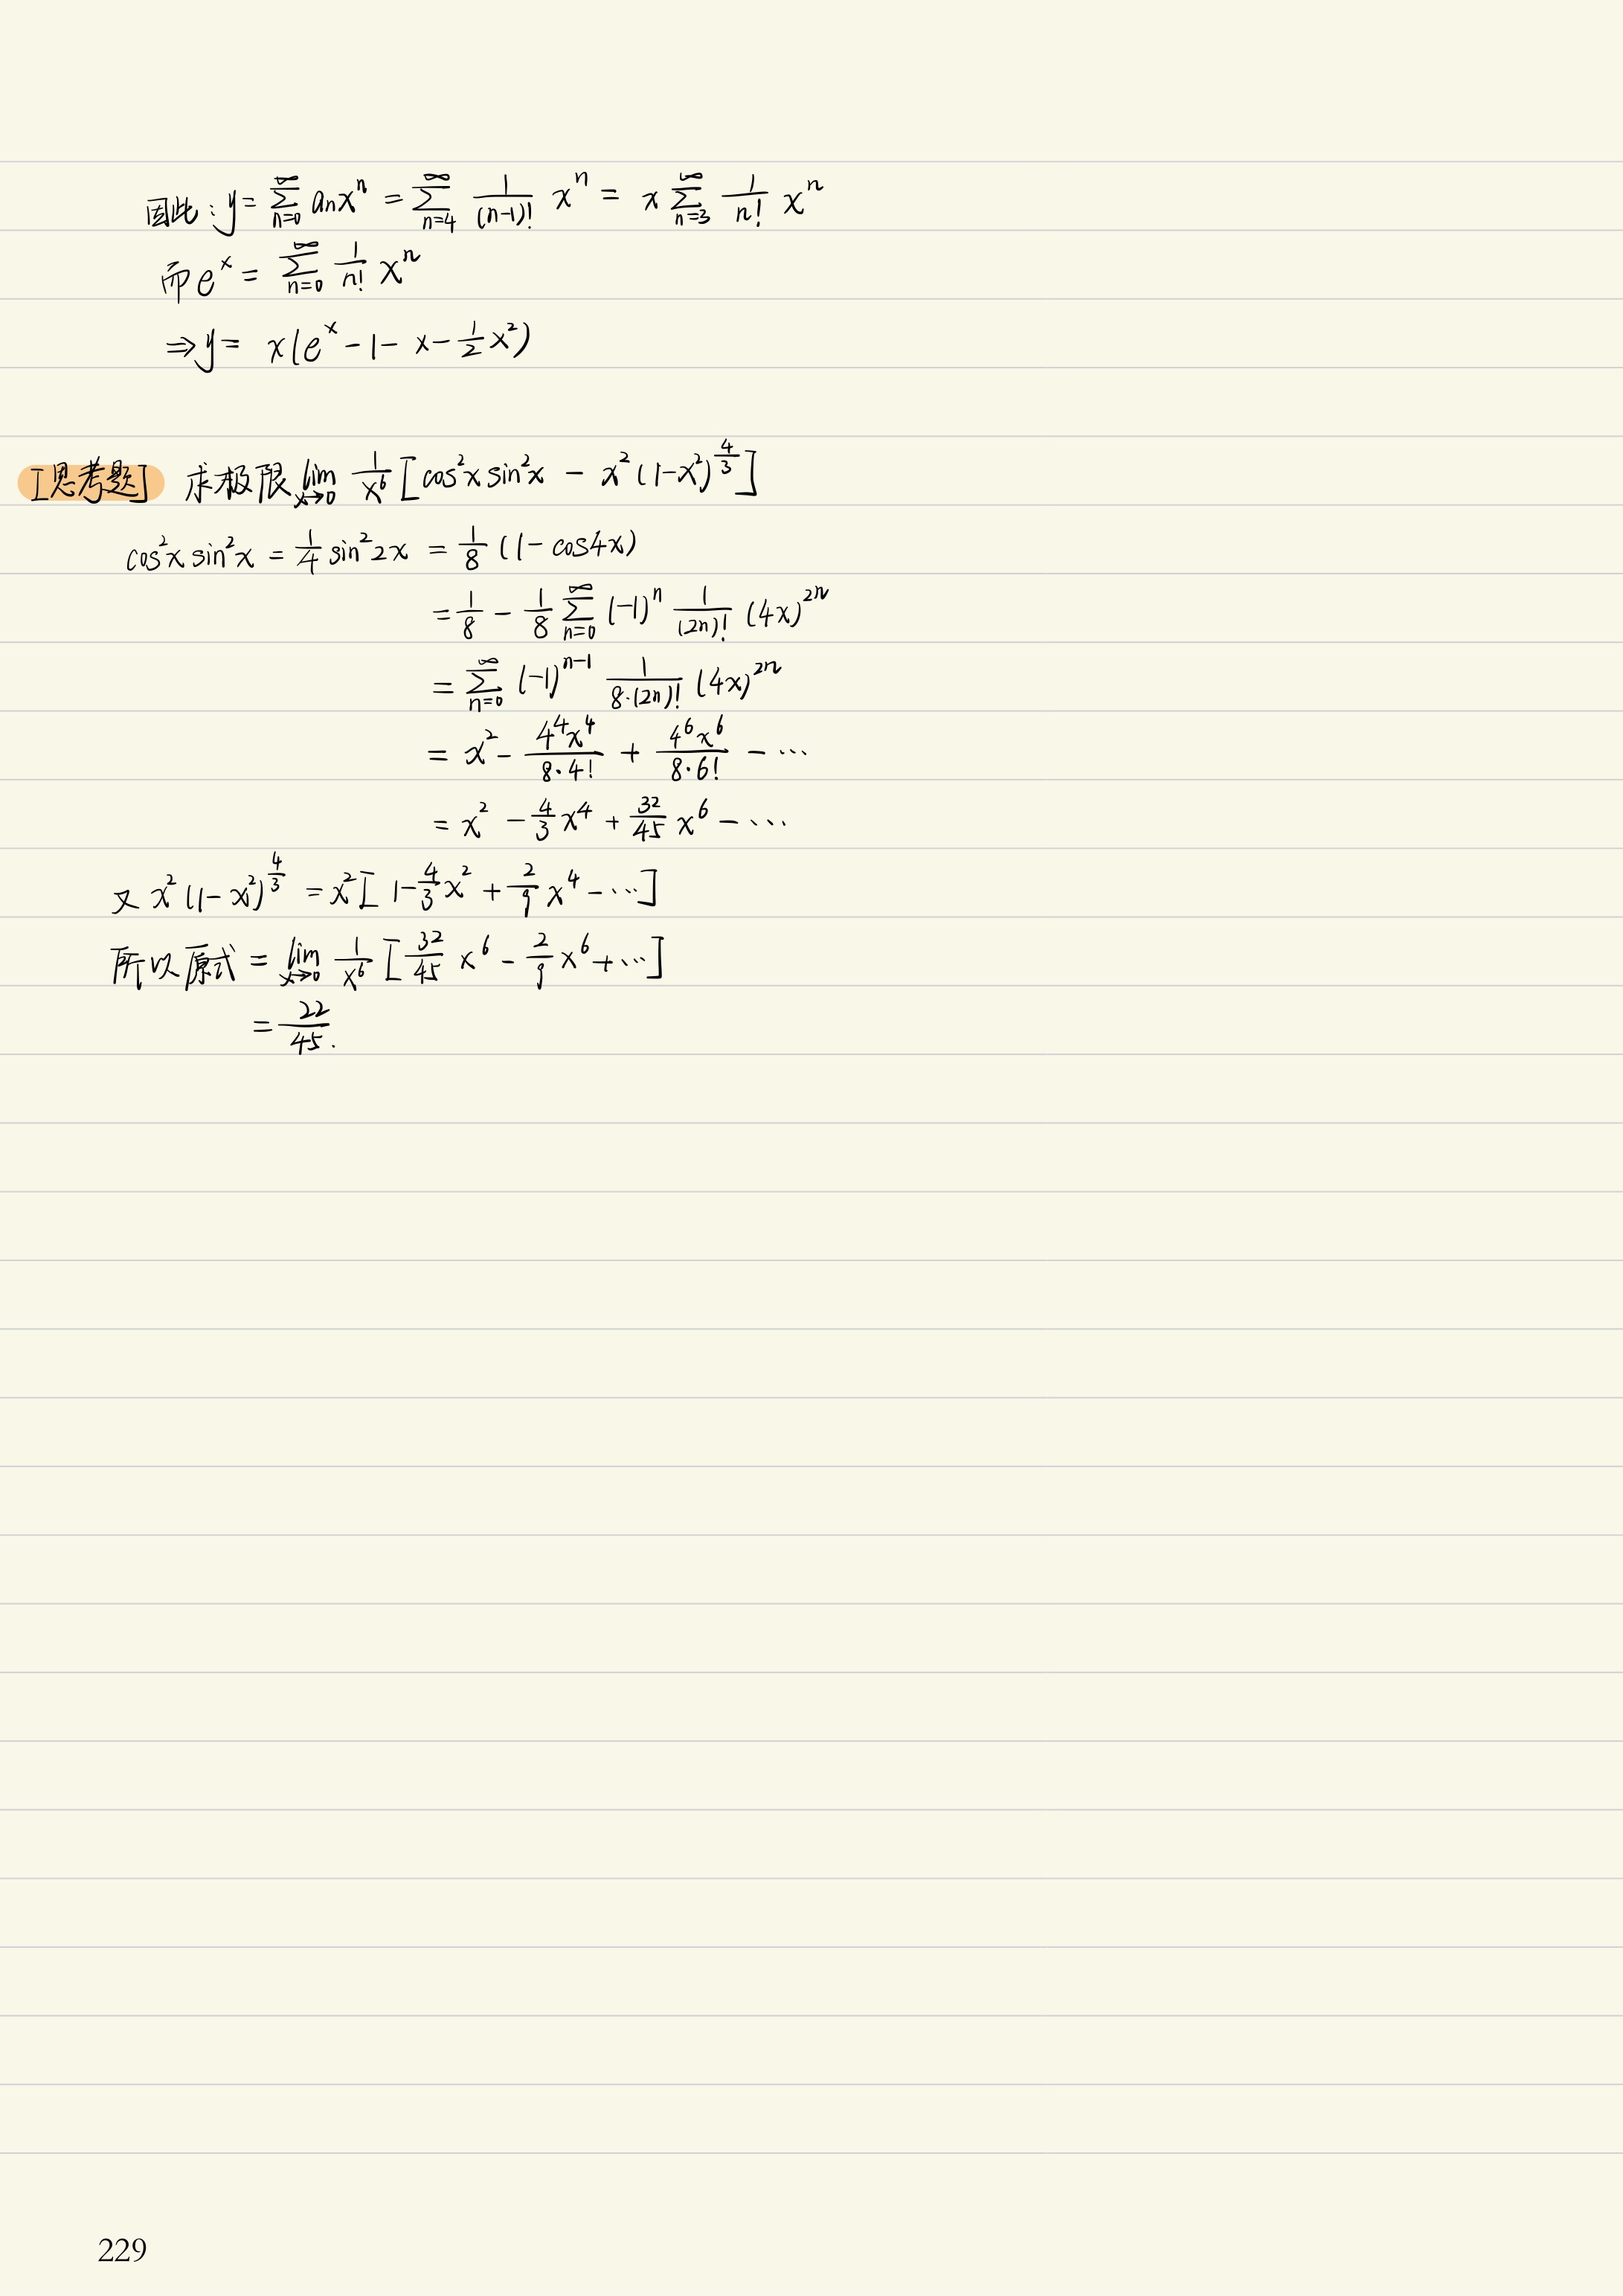 因此：y = \sum_{n=0}^{\infty} a_n x^n = \sum_{n=4}^{\infty} \frac{1}{(n-1)!} x^n = x \sum_{n=3}^{\infty} \frac{1}{n!} x^n
而 e^x = \sum_{n=0}^{\infty} \frac{1}{n!} x^n
⇒ y = x(e^x - 1 - x - \frac{1}{2}x^2)
[思考题] 求极限 \lim_{x→0} \frac{1}{x^6} [cos^2x sin^2x - x^2(1-x^2)^{\frac{4}{3}}]
cos^2x sin^2x = \frac{1}{4} sin^2 2x = \frac{1}{8}(1 - cos4x)
= \frac{1}{8} - \frac{1}{8} \sum_{n=0}^{\infty} (-1)^n \frac{1}{(2n)!} (4x)^{2n}
= \sum_{n=0}^{\infty} (-1)^{n-1} \frac{1}{8·(2n)!} (4x)^{2n}
= x^2 - \frac{4^4x^4}{8·4!} + \frac{4^6x^6}{8·6!} - ⋯
= x^2 - \frac{4}{3}x^4 + \frac{32}{45}x^6 - ⋯
又 x^2(1-x^2)^{\frac{4}{3}} = x^2[1 - \frac{4}{3}x^2 + \frac{2}{9}x^4 - ⋯]
所以原式 = \lim_{x→0} \frac{1}{x^6} [\frac{32}{45}x^6 - \frac{2}{9}x^6 + ⋯]
= \frac{22}{45}.
229